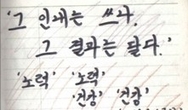 '그 인내는 쓰나,
그 결과는 달다.'
'노력' '노력'
'건강' '건강'